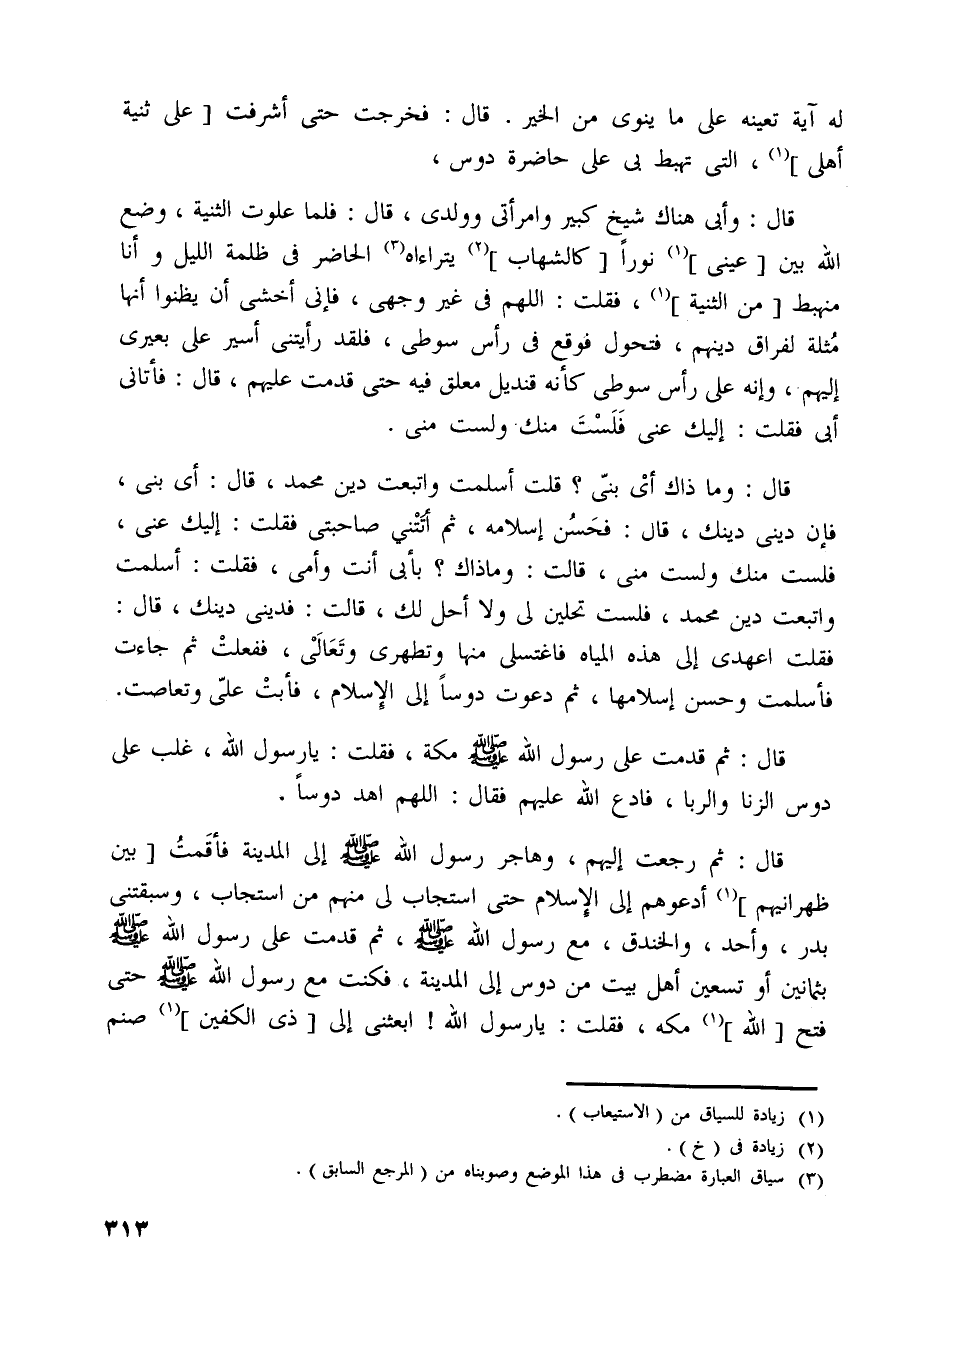 له آية تعينه على ما ينوى من الخير . قال : فخرجت حتى أشرفت [ على ثنية
أهلى ](١) ، التى تهبط بى على حاضرة دوس ،
قال : وأبى هناك شيخ كبير وامرأتى وولدى ، قال : فلما علوت الثنية ، وضع
الله بين [ عينى ](١) نوراً [ كالشهاب ](٢) يتراءاه(٣) الحاضر فى ظلمة الليل و أنا
منهبط [ من الثنية ](١) ، فقلت : اللهم فى غير وجهى ، فإنى أخشى أن يظنوا أنها
مُثلة لفراق دينهم ، فتحول فوقع فى رأس سوطى ، فلقد رأيتنى أسير على بعيرى
إليهم ، وإنه على رأس سوطى كأنه قنديل معلق فيه حتى قدمت عليهم ، قال : فأتانى
أبى فقلت : إليك عنى فَلَسْتَ منك ولست منى .
قال : وما ذاك أىْ بنىّ ؟ قلت أسلمت واتبعت دين محمد ، قال : أى بنى ،
فإن دينى دينك ، قال : فحَسُن إسلامه ، ثم أتَتْني صاحبتى فقلت : إليك عنى ،
فلست منك ولست منى ، قالت : وماذاك ؟ بأبى أنت وأمى ، فقلت : أسلمت
واتبعت دين محمد ، فلست تحلين لى ولا أحل لك ، قالت : فدينى دينك ، قال :
فقلت اعهدى إلى هذه المياه فاغتسلى منها وتطهرى وتَعَالَىْ ، ففعلتْ ثم جاءت
فأسلمت وحسن إسلامها ، ثم دعوت دوساً إلى الإسلام ، فأبتْ علىّ وتعاصت.
قال : ثم قدمت على رسول الله ﷺ مكة ، فقلت : يارسول الله ، غلب على
دوس الزنا والربا ، فادع الله عليهم فقال : اللهم اهد دوساً .
قال : ثم رجعت إليهم ، وهاجر رسول الله ﷺ إلى المدينة فأقَمتُ [ بين
ظهرانيهم ](١) أدعوهم إلى الإسلام حتى استجاب لى منهم من استجاب ، وسبقتنى
بدر ، وأحد ، والخندق ، مع رسول الله ﷺ ، ثم قدمت على رسول الله ﷺ
بثمانين أو تسعين أهل بيت من دوس إلى المدينة ، فكنت مع رسول الله ﷺ حتى
فتح [ الله ](١) مكه ، فقلت : يارسول الله ! ابعثنى إلى [ ذى الكفين ](١) صنم
(١) زيادة للسياق من ( الاستيعاب ) .
(٢) زيادة فى ( خ ) .
(٣) سياق العبارة مضطرب فى هذا الموضع وصوبناه من ( المرجع السابق ) .
٣١٣